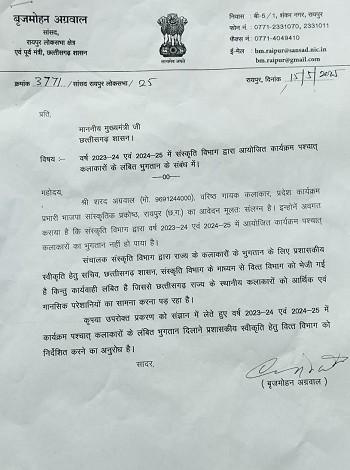 बृजमोहन अग्रवाल
सांसद,
रायपुर लोकसभा क्षेत्र
एवं पूर्व मंत्री, छत्तीसगढ़ शासन
निवास : बी-5/1, शंकर नगर, रायपुर
फोन नं. : 0771-2331070, 2331011
फैक्स नं.: 0771-4049410
ई-मेल : bm.raipur@sansad.nic.in
bm.raipur@gmail.com
क्रमांक 3771/सांसद रायपुर लोकसभा/25
रायपुर, दिनांक 15/5/2025
प्रति,
माननीय मुख्यमंत्री जी
छत्तीसगढ़ शासन।
विषय :– वर्ष 2023–24 एवं 2024–25 में संस्कृति विभाग द्वारा आयोजित कार्यक्रम पश्चात्
कलाकारों के लंबित भुगतान के संबंध में।
––00––
महोदय,
श्री शरद अग्रवाल (मो. 9691244000), वरिष्ठ गायक कलाकार, प्रदेश कार्यक्रम
प्रभारी भाजपा सांस्कृतिक प्रकोष्ठ, रायपुर (छ.ग.) का आवेदन मूलतः संलग्न है। इन्होंने अवगत
कराया है कि संस्कृति विभाग द्वारा वर्ष 2023–24 एवं 2024–25 में आयोजित कार्यक्रम पश्चात्
कलाकारों का भुगतान नहीं हो पाया है।
संचालक संस्कृति विभाग द्वारा राज्य के कलाकारों के भुगतान के लिए प्रशासकीय
स्वीकृति हेतु सचिव, छत्तीसगढ़ शासन, संस्कृति विभाग के माध्यम से वित्त विभाग को भेजी गई
है किन्तु कार्यवाही लंबित है जिससे छत्तीसगढ़ राज्य के स्थानीय कलाकारों को आर्थिक एवं
मानसिक परेशानियों का सामना करना पड़ रहा है।
कृप्या उपरोक्त प्रकरण को संज्ञान में लेते हुए वर्ष 2023–24 एवं 2024–25 में
कार्यक्रम पश्चात् कलाकारों के लंबित भुगतान दिलाने प्रशासकीय स्वीकृति हेतु वित्त विभाग को
निर्देशित करने का अनुरोध है।
सादर,
( बृजमोहन अग्रवाल)